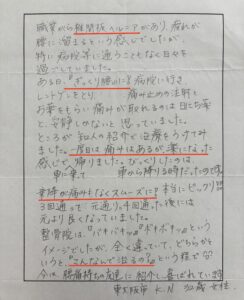 職業がら椎間板ヘルニアがあり、疲れが
腰に溜まるという感じでしたが
特に病院等に通うこともなく日々を
過ごしていました。
ある日、ぎっくり腰になり病院に行き
レントゲンをとり 痛み止めの注射と
お薬をもらい痛みが取れるのは日にち薬
と安静しかないと思っていました。
ところが知人の紹介で治療をうけてみ
ました。一度目は痛みはあるが、楽になった
感じで帰りました。びっくりしたのは
車に乗て 車から降りる時だったのです
乗降が痛みもなくスムーズに!!本当にビックリ
3回通って「元通り」。4回通った後には
元より良くなっていました。
整骨院は、「バキバキッ」「ボキボキッ」という
イメージでしたが、全く違っていて、どちらかと
いうと、『さんなんで治るの?』という様です
今は、腰痛持ちの友達に紹介し喜ばれています
東大阪市 K.N 32歳 女性